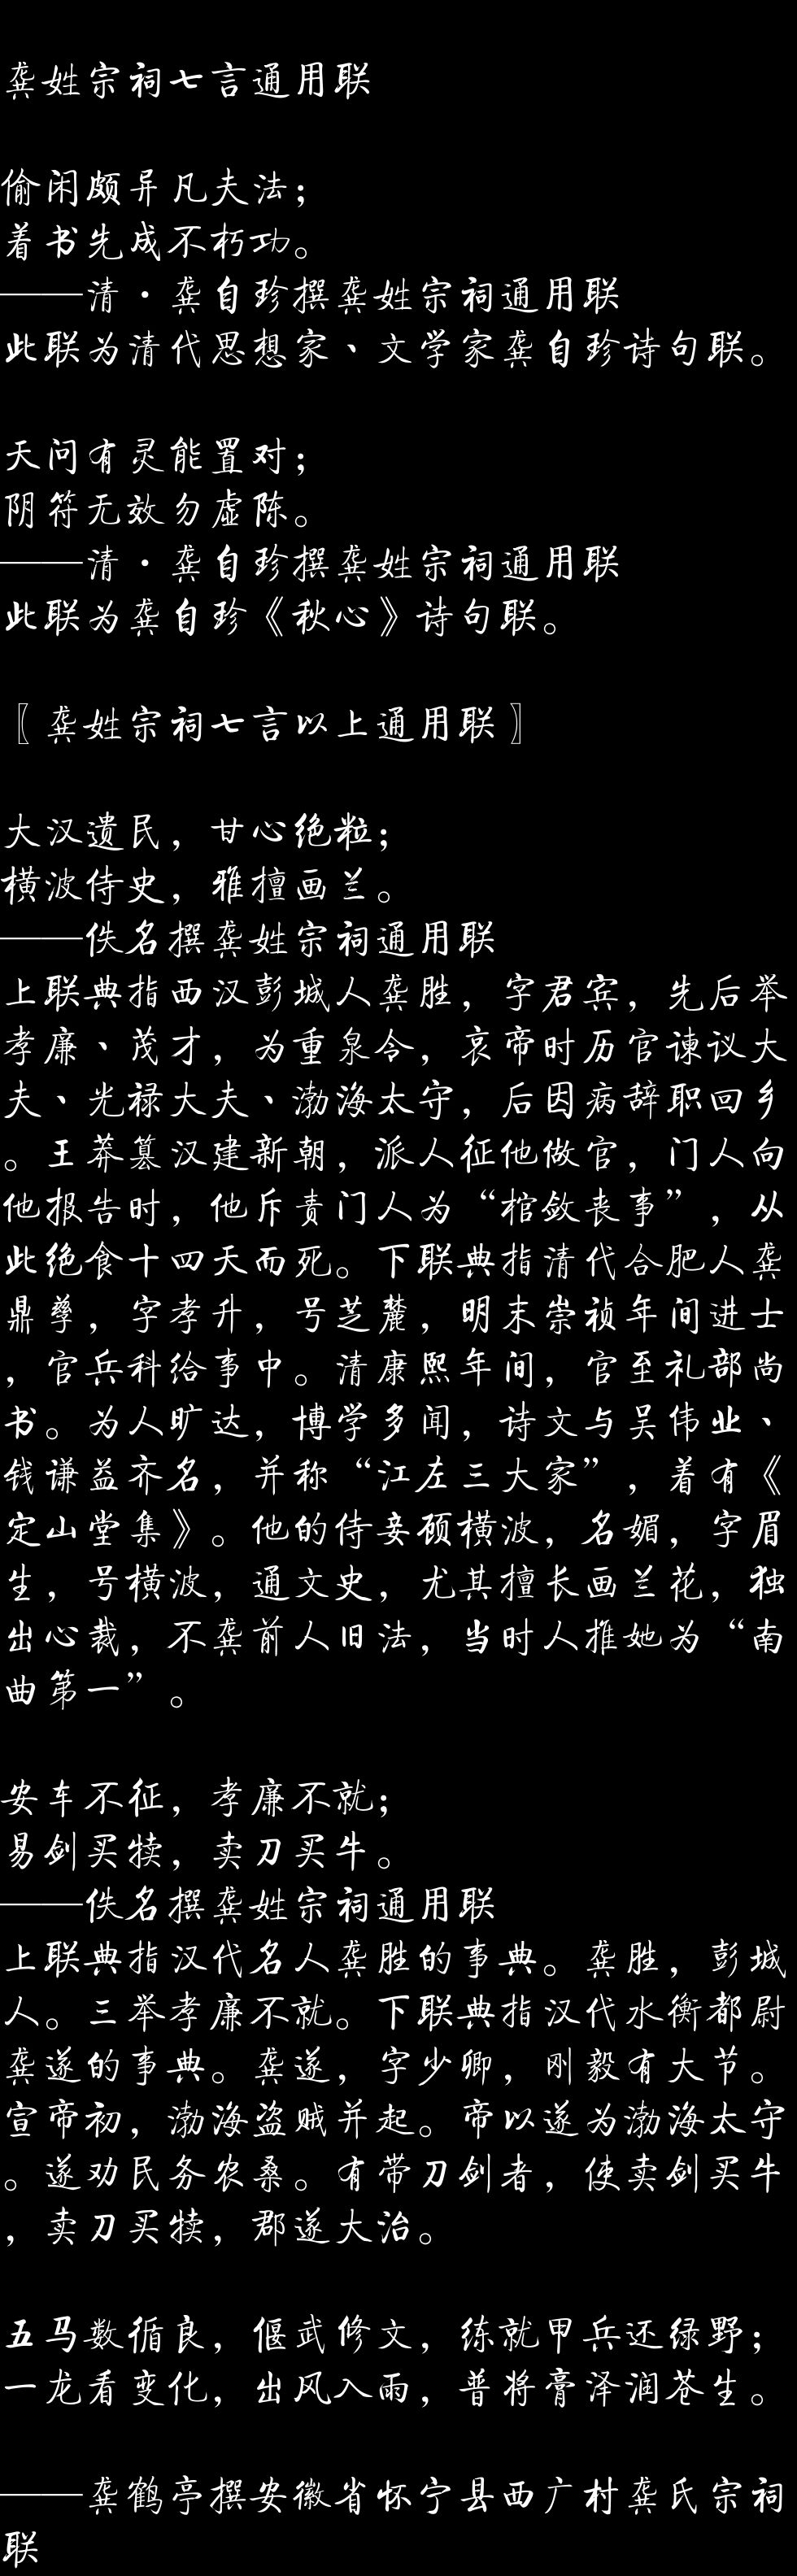 龚姓宗祠七言通用联
偷闲颇异凡夫法；
着书先成不朽功。
——清·龚自珍撰龚姓宗祠通用联
此联为清代思想家、文学家龚自珍诗句联。
天问有灵能置对；
阴符无效勿虚陈。
——清·龚自珍撰龚姓宗祠通用联
此联为龚自珍《秋心》诗句联。
〖龚姓宗祠七言以上通用联〗
大汉遗民，甘心绝粒；
横波侍史，雅擅画兰。
——佚名撰龚姓宗祠通用联
上联典指西汉彭城人龚胜，字君宾，先后举
孝廉、茂才，为重泉令，哀帝时历官谏议大
夫、光禄大夫、渤海太守，后因病辞职回乡
。王莽篡汉建新朝，派人征他做官，门人向
他报告时，他斥责门人为“棺敛丧事”，从
此绝食十四天而死。下联典指清代合肥人龚
鼎孳，字孝升，号芝麓，明末崇祯年间进士
，官兵科给事中。清康熙年间，官至礼部尚
书。为人旷达，博学多闻，诗文与吴伟业、
钱谦益齐名，并称“江左三大家”，着有《
定山堂集》。他的侍妾顾横波，名媚，字眉
生，号横波，通文史，尤其擅长画兰花，独
出心裁，不龚前人旧法，当时人推她为“南
曲第一”。
安车不征，孝廉不就；
易剑买犊，卖刀买牛。
——佚名撰龚姓宗祠通用联
上联典指汉代名人龚胜的事典。龚胜，彭城
人。三举孝廉不就。下联典指汉代水衡都尉
龚遂的事典。龚遂，字少卿，刚毅有大节。
宣帝初，渤海盗贼并起。帝以遂为渤海太守
。遂劝民务农桑。有带刀剑者，使卖剑买牛
，卖刀买犊，郡遂大治。
五马数循良，偃武修文，练就甲兵还绿野；
一龙看变化，出风入雨，普将膏泽润苍生。
——龚鹤亭撰安徽省怀宁县西广村龚氏宗祠
联